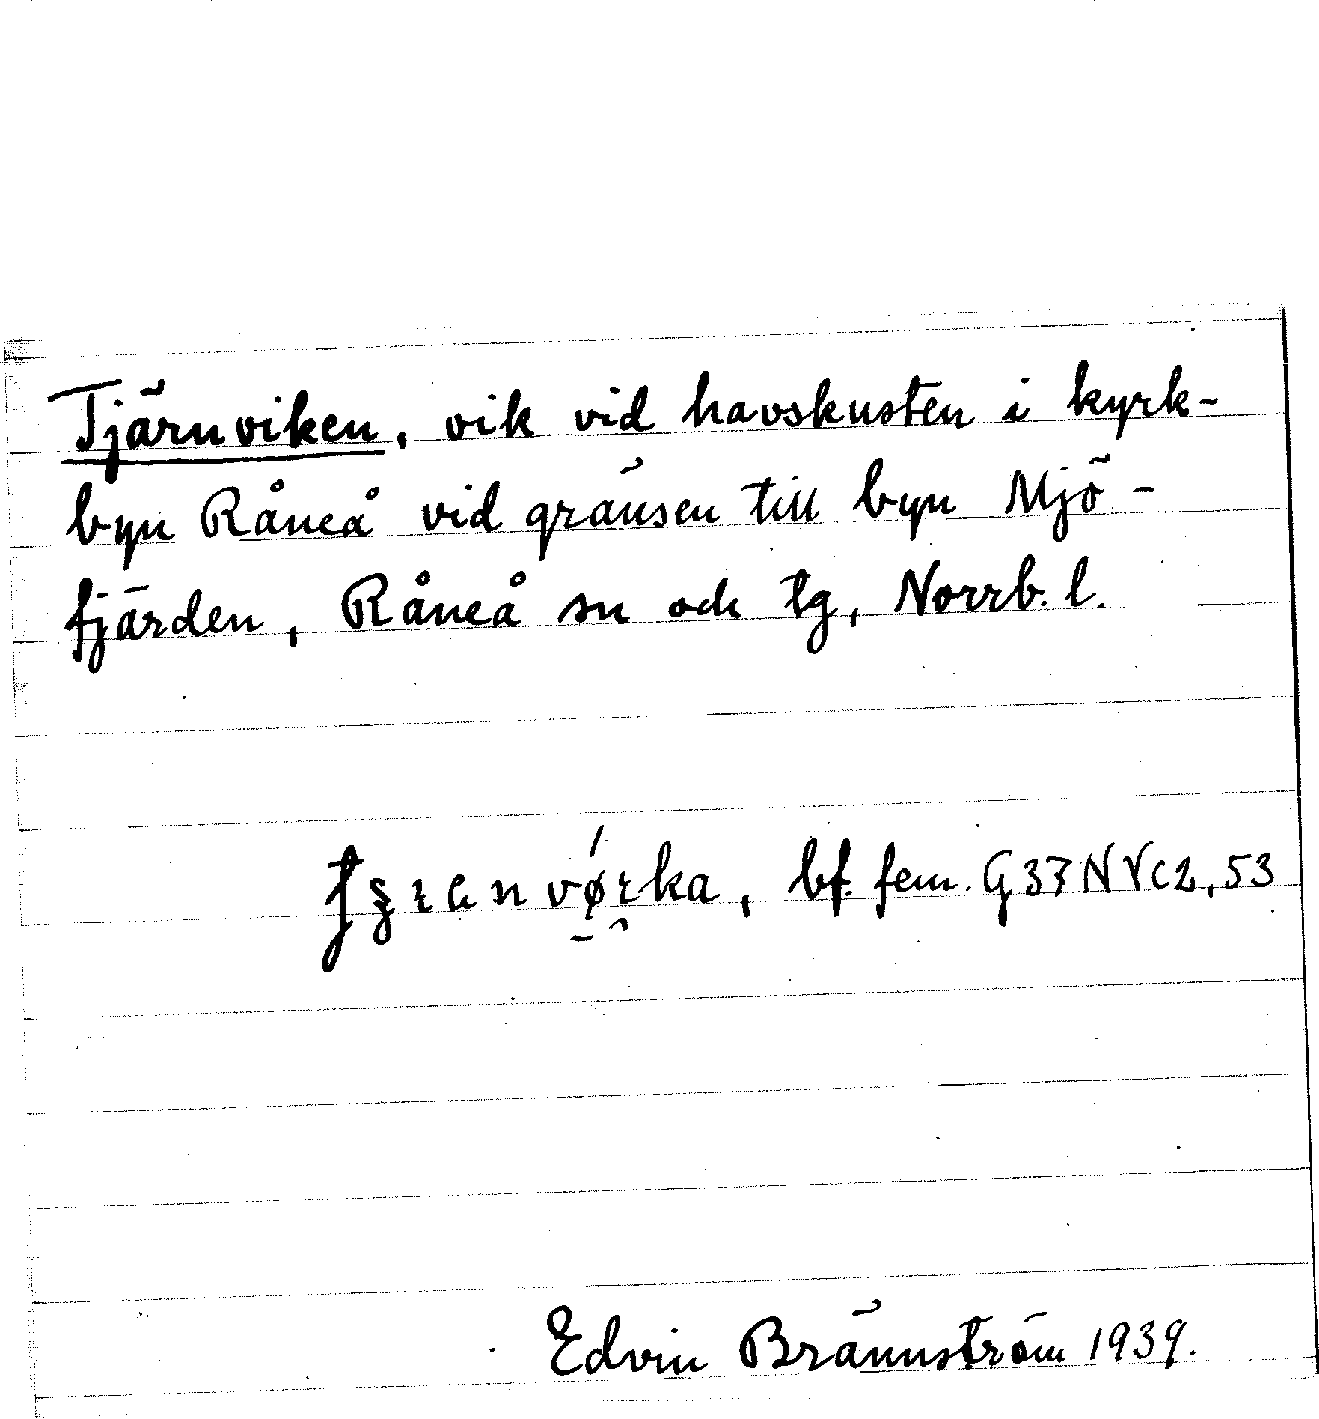 Tjärnviken, vik vid havskusten i kyrk-
byn Råneå vid gränsen till byn Mjö-
fjärden, Råneå sn och tg, Norrb. l.
bf. fem. G37NVc2,53
Edvin Brännström 1939.